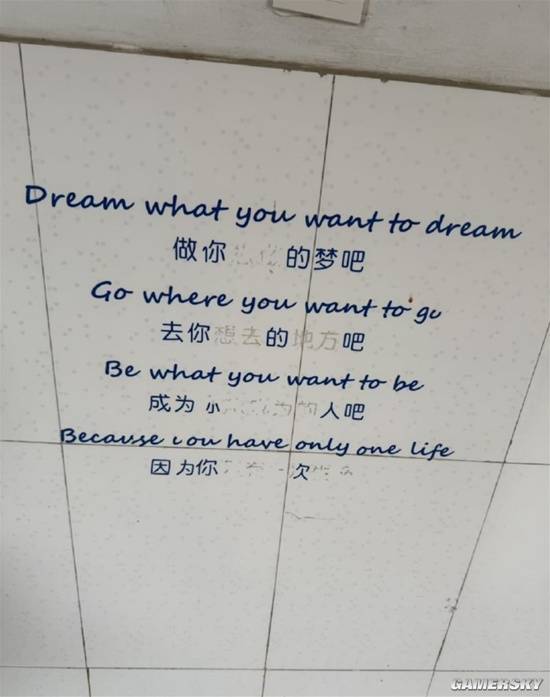 Dream what you want to dream
做你 的梦吧
Go where you want to go
去你想去的地方吧
Be what you want to be
成为 小 人吧
Because you have only one life
因为你 次
GAMERSKY